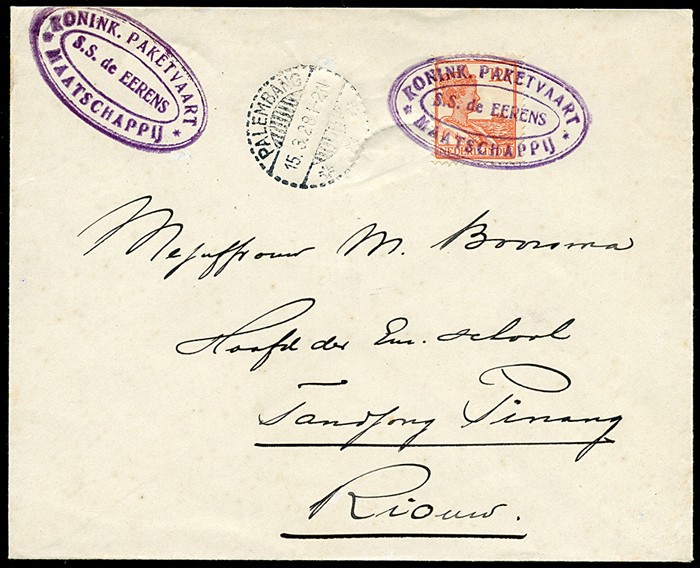 KONINK. PAKETVAART
S.S. de EERENS
MAATSCHAPPIJ
PALEMBANG
15.3.28.1-2N
KONINK. PAKETVAART
S.S. de EERENS
MAATSCHAPPIJ
Mejuffrouw M. Boorsma
Hoofd der Eur. School
Tandjong Pinang
Riouw.